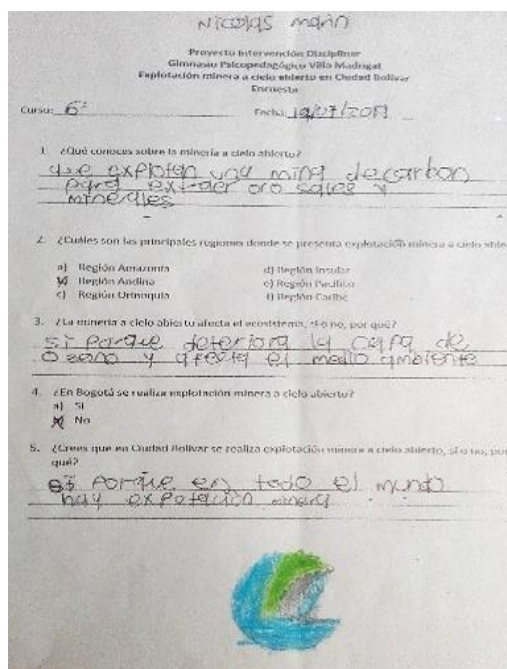 Nicolas marin
Proyecto Intervención Disciplinar
Gimnasio Psicopedagógico Villa Madrigal
Explotación minera a cielo abierto en Ciudad Bolívar
Encuesta
Curso: 6° Fecha:
1. ¿Qué conoces sobre la minería a cielo abierto?
que explotan una mina de carbon
para extraer oro sales y
minerales
2. ¿Cuáles son las principales regiones donde se presenta explotación minera a cielo abie
a) Región Amazonía d) Región Insular
Región Andina e) Región Pacífico
c) Región Orinoquía f) Región Caribe
3. ¿La minería a cielo abierto afecta el ecosistema, sí o no, por qué?
si porque deteriora la capa de
Ozono y afecta el medio ambiente
4. ¿En Bogotá se realiza explotación minera a cielo abierto?
a) Si
No
5. ¿Crees que en Ciudad Bolívar se realiza explotación minera a cielo abierto, sí o no, por
qué?
si porque en todo el mundo
hay expotación minera